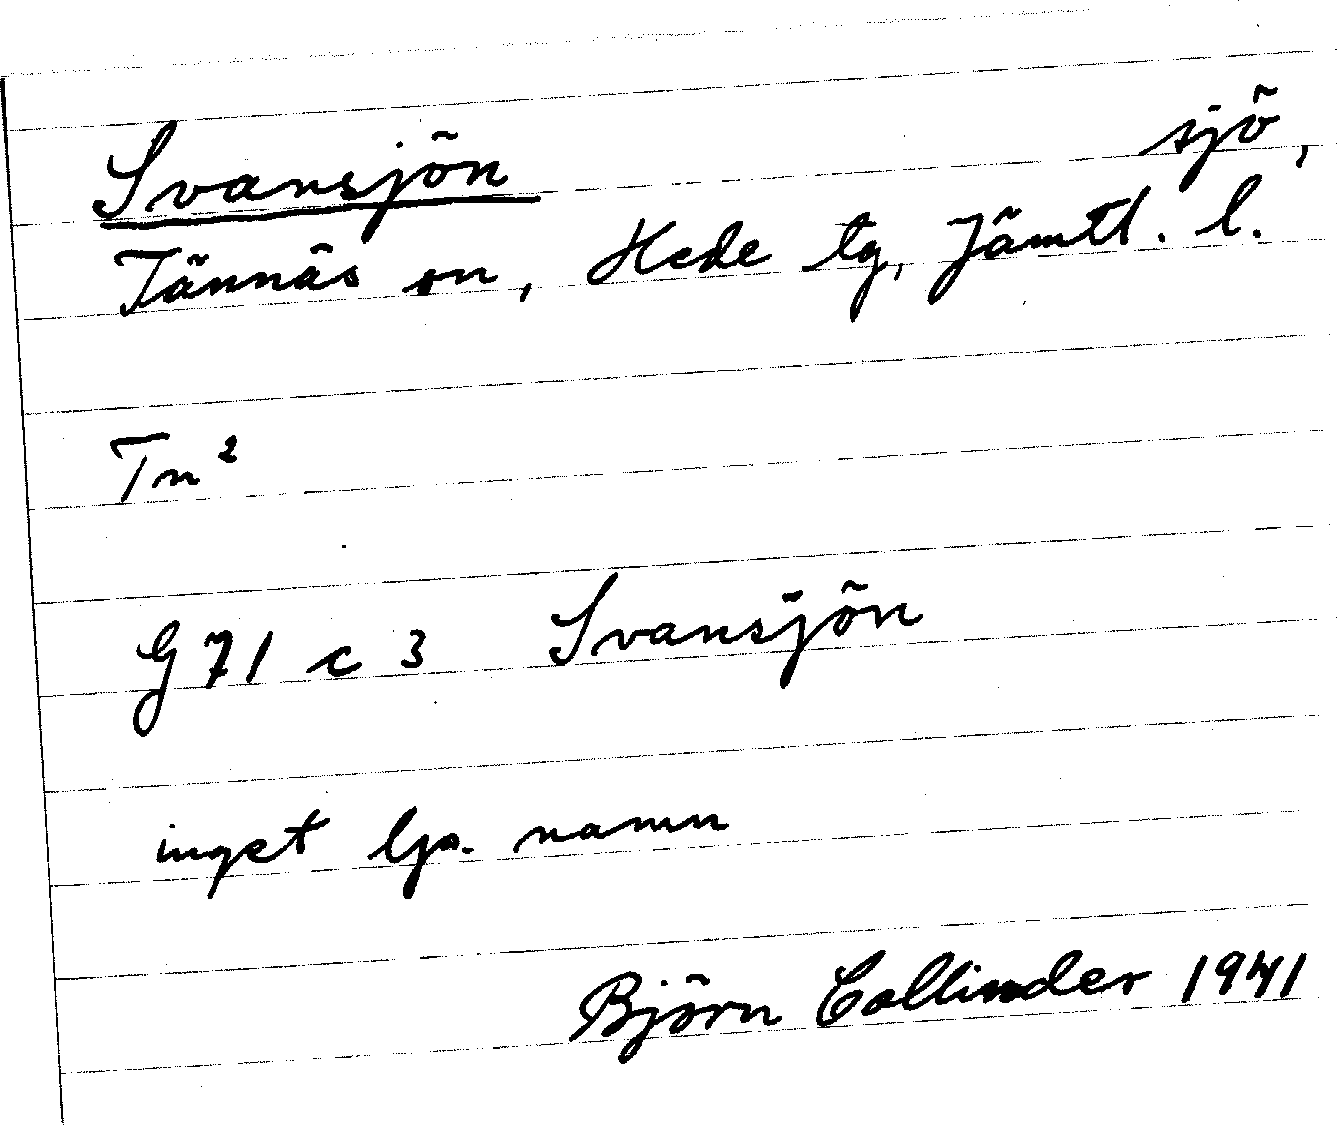 Svansjön sjö,
Tännäs sn, Hede tg, Jämtl. l.
Tn²
G 71 c 3 Svansjön
inget lja. namn
Björn Collinder 1941